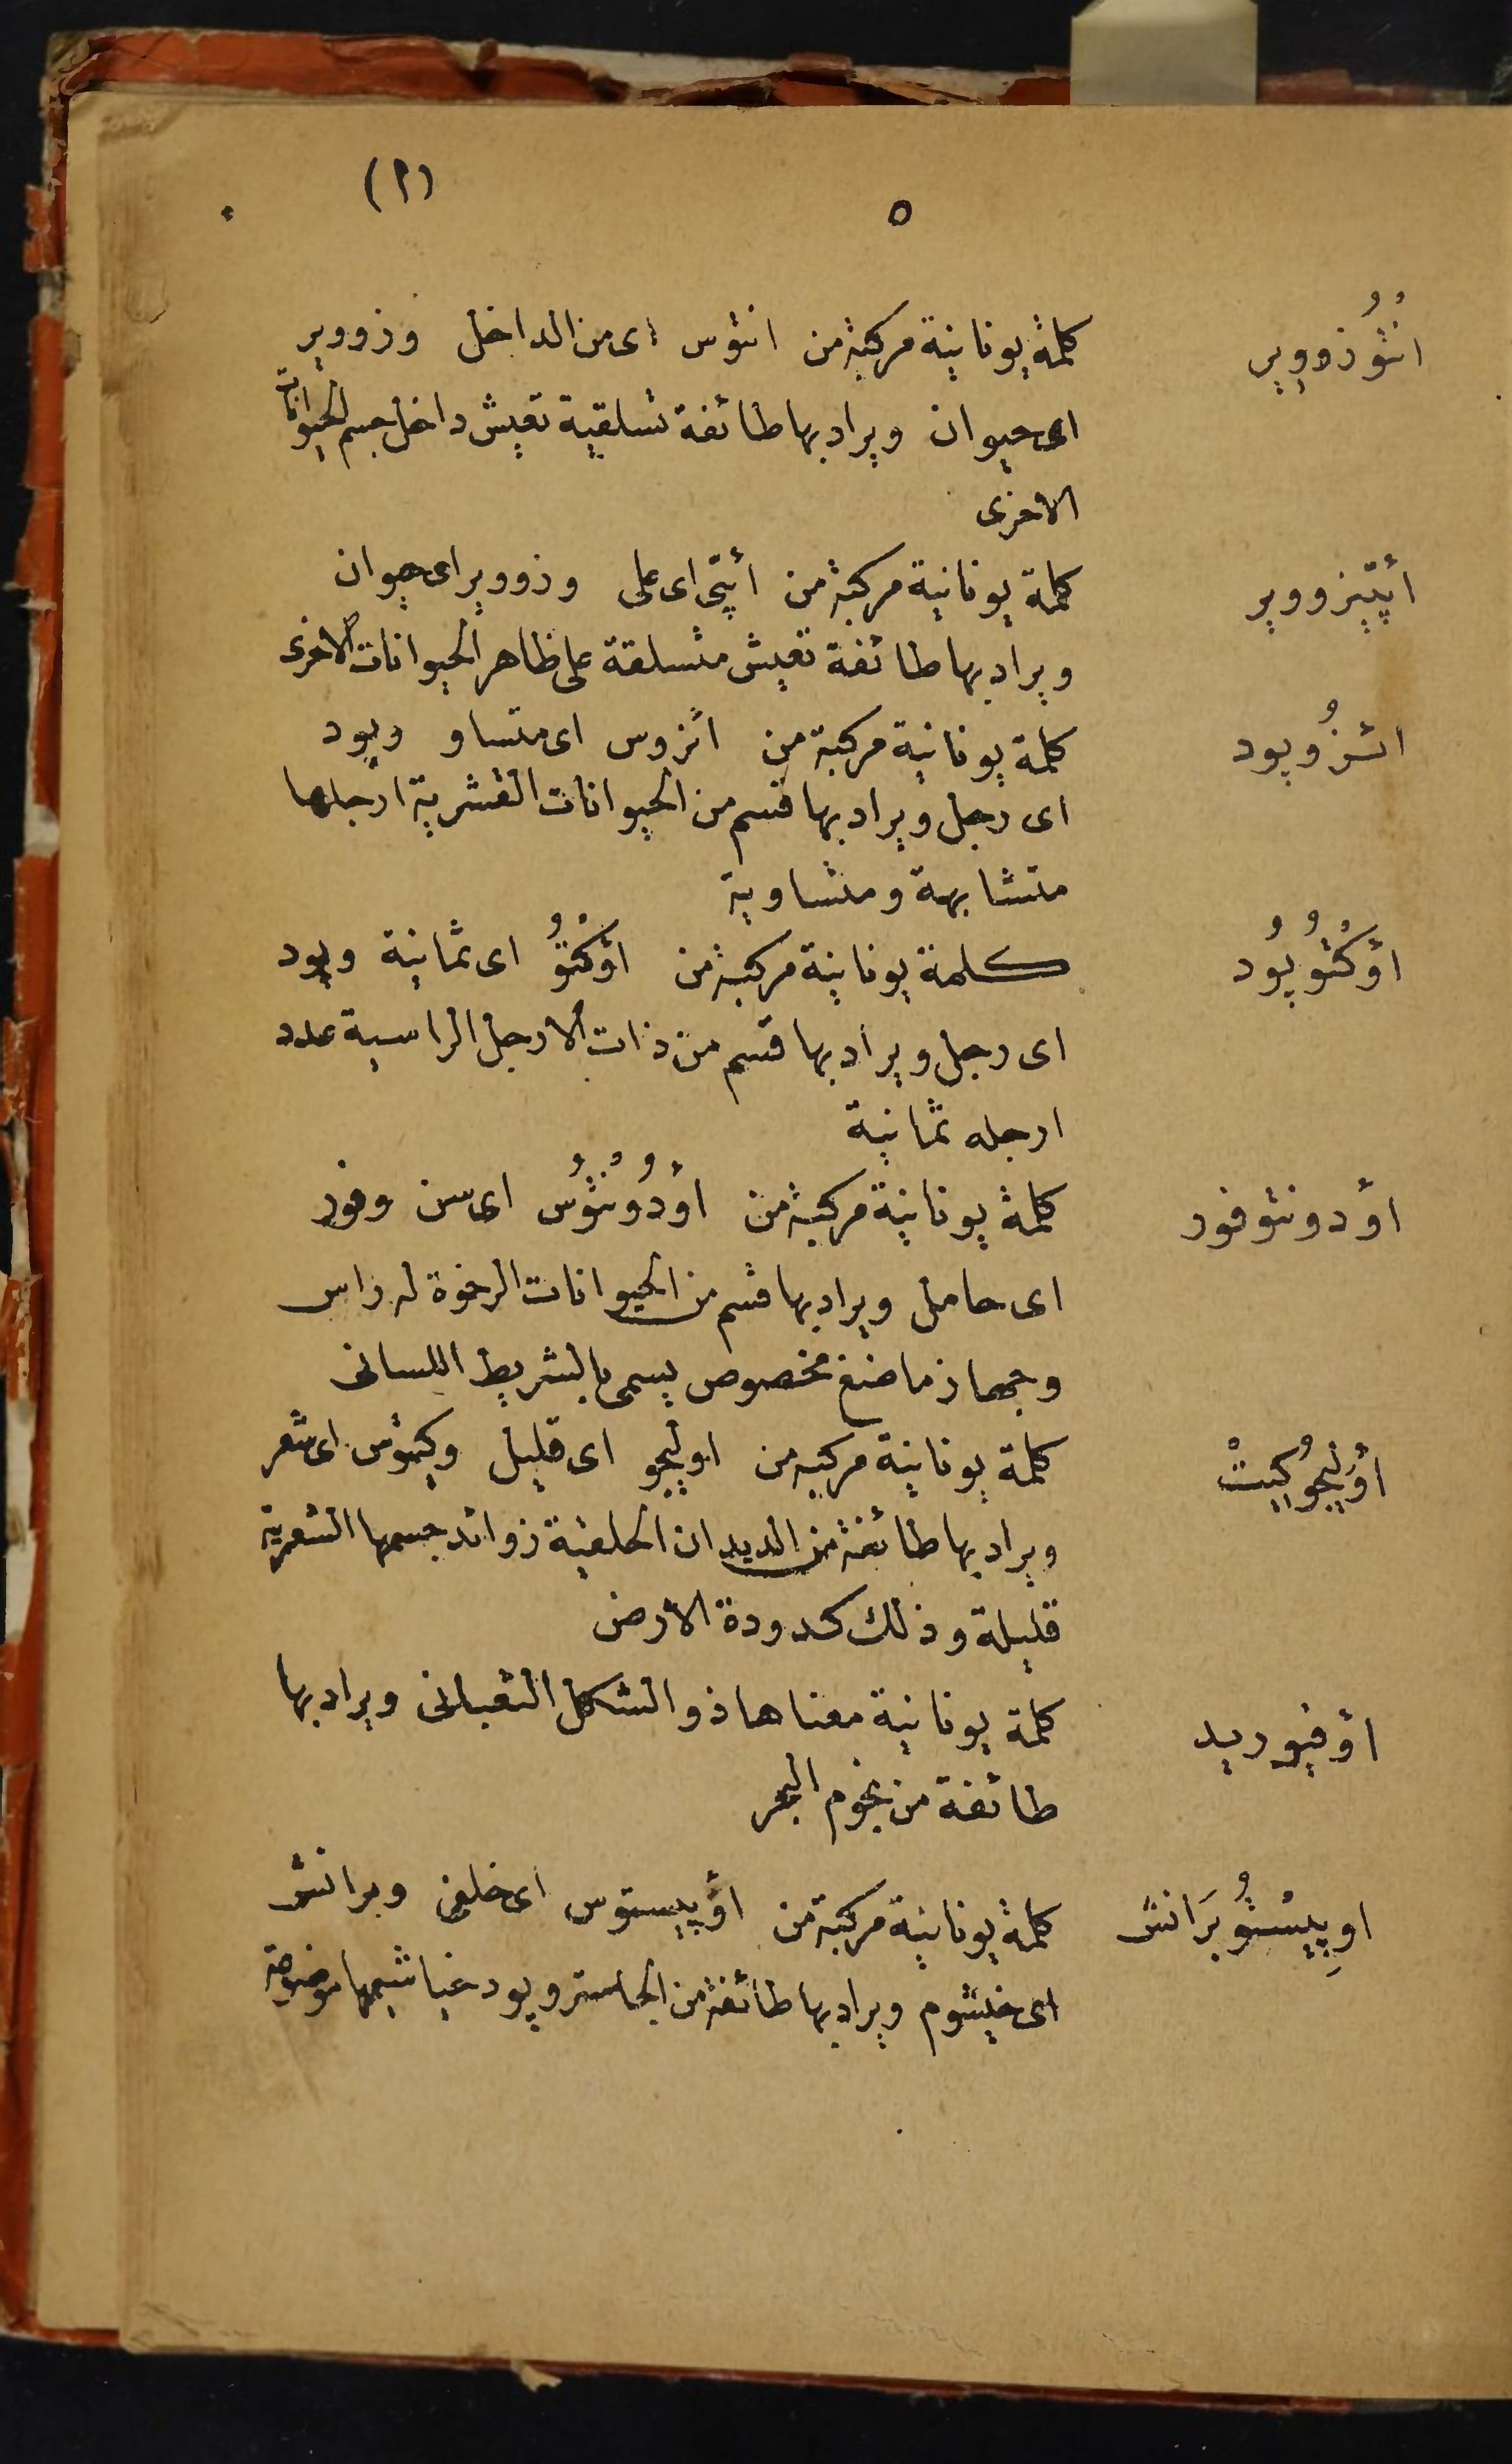 (١)
٥
انْتُوُزووير كلمة يونانية مركبة من انتوس اى من الداخل وزووير
اى حيوان ويراد بها طائفة تسلقية تعيش داخل جسم الحيوانات
الاخرى
أپتيزووير كلمة يونانية مركبة من أپتى اى على وزووير اى حيوان
ويراد بها طائفة تعيش متسلقة على ظاهر الحيوانات الاخرى
ائزُوپود كلمة يونانية مركبة من ائزوس اى متساو وپود
اى رجل ويراد بها قسم من الحيوانات القشرية ارجلها
متشابهة ومتساوية
أوُكْتُوپُود كلمة يونانية مركبة من أوكْتُو اى ثمانية وپود
اى رجل ويراد بها قسم من ذات الارجل الراسية عدد
ارجله ثمانية
أودونتوفور كلمة يونانية مركبة من أودُونْتُوُس اى سن وفور
اى حامل ويراد بها قسم من الحيوانات الرخوة له راس
وجهاز ماضغ مخصوص يسمى بالشريط اللسانى
أوُليجوُكيتْ كلمة يونانية مركبة من اوليجو اى قليل وكيتوس اى شعر
ويراد بها طائفة من الديدان الحلقية زوائد جسمها الشعرية
قليلة وذلك كدودة الارض
أوفيوريد كلمة يونانية معناها ذو الشكل الثعبانى ويراد بها
طائفة من نجوم البحر
اوپيسْتُوبرَانش كلمة يونانية مركبة من أوپيستوس اى خلفى وبرانش
اى خيشوم ويراد بها طائفة من الجاستروپود خياشيمها موضوعة